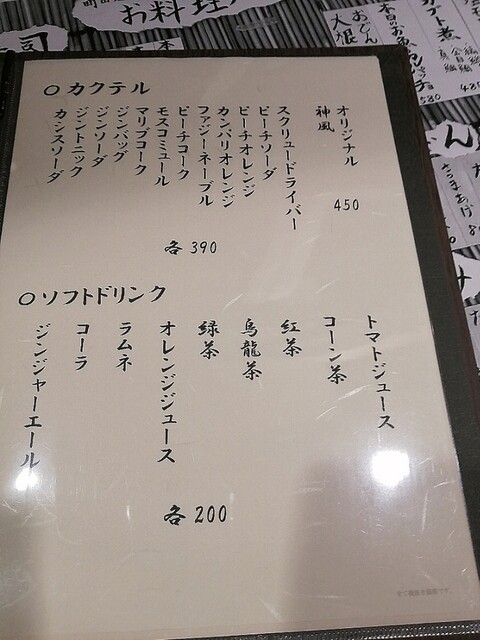 お料理
○カクテル
オリジナル
神風
450
スクリュードライバー
ピーチソーダ
ピーチオレンジ
カンパリオレンジ
ファジーネーブル
ピーチコーク
モスコミュール
マリブコーク
ジンバッグ
ジンソーダ
ジントニック
カシスソーダ
各390
○ソフトドリンク
トマトジュース
コーン茶
紅茶
烏龍茶
緑茶
オレンジジュース
ラムネ
コーラ
ジンジャーエール
各200
おでん
大根
さつまあげ
580